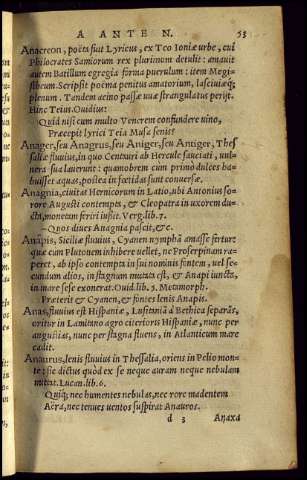 A A N T E N. 53
Anacreon, poëta fuit Lyricus, ex Teo Ioniæ urbe, cui
Philocrates Samiorum rex plurimum detulit: amauit
autem Batillum egregia forma puerulum: item Megi-
stherum. Scripsit poëma penitus amatorium, lasciuiæq;
plenum. Tandem acino passæ uuæ strangulatus perijt.
Hinc Teius. Ouidius:
Quid nisi cum multo Venerem confundere uino,
Præcepit lyrici Teia Musa senis?
Anager, seu Anagrus, seu Aniger, seu Antiger, Thes
saliæ fluuius, in quo Centauri ab Hercule sauciati, uul-
nera sua lauerunt: quamobrem cum primò dulces ha-
buisset aquas, postea in fœtidas sunt conuersæ.
Anagnia, ciuitas Hernicorum in Latio, ubi Antonius so-
rore Augusti contempta, & Cleopatra in uxorem du-
cta, monetam feriri iussit. Verg. lib. 7.
Quos diues Anagnia pascit, &c.
Anapis, Siciliæ fluuius, Cyanen nymphã amasse fertur:
quæ cum Plutonem inhibere uellet, ne Proserpinam ra-
peret, ab ipso contempta in sui nominis fontem, uel se-
cundum alios, in stagnum mutata est, & Anapi iuncta,
in mare sese exonerat. Ouid. lib. 5. Metamorph.
Præterit & Cyanen, & fontes lenis Anapis.
Anas, fluuius est Hispaniæ, Lusitaniã à Bethica separãs,
oritur in Lamitano agro citerioris Hispaniæ, nunc per
angustias, nunc per stagna fluens, in Atlanticum mare
cadit.
Anaurus, lenis fluuius in Thessalia, oriens in Pelio mon-
te: sic dictus quòd ex se neque auram neque nebulam
mittat. Lucan. lib. 6.
Quiq; nec humentes nebulas, nec rore madentem
Aëra, nec tenues uentos suspirat Anauros.
d 3 Anaxa